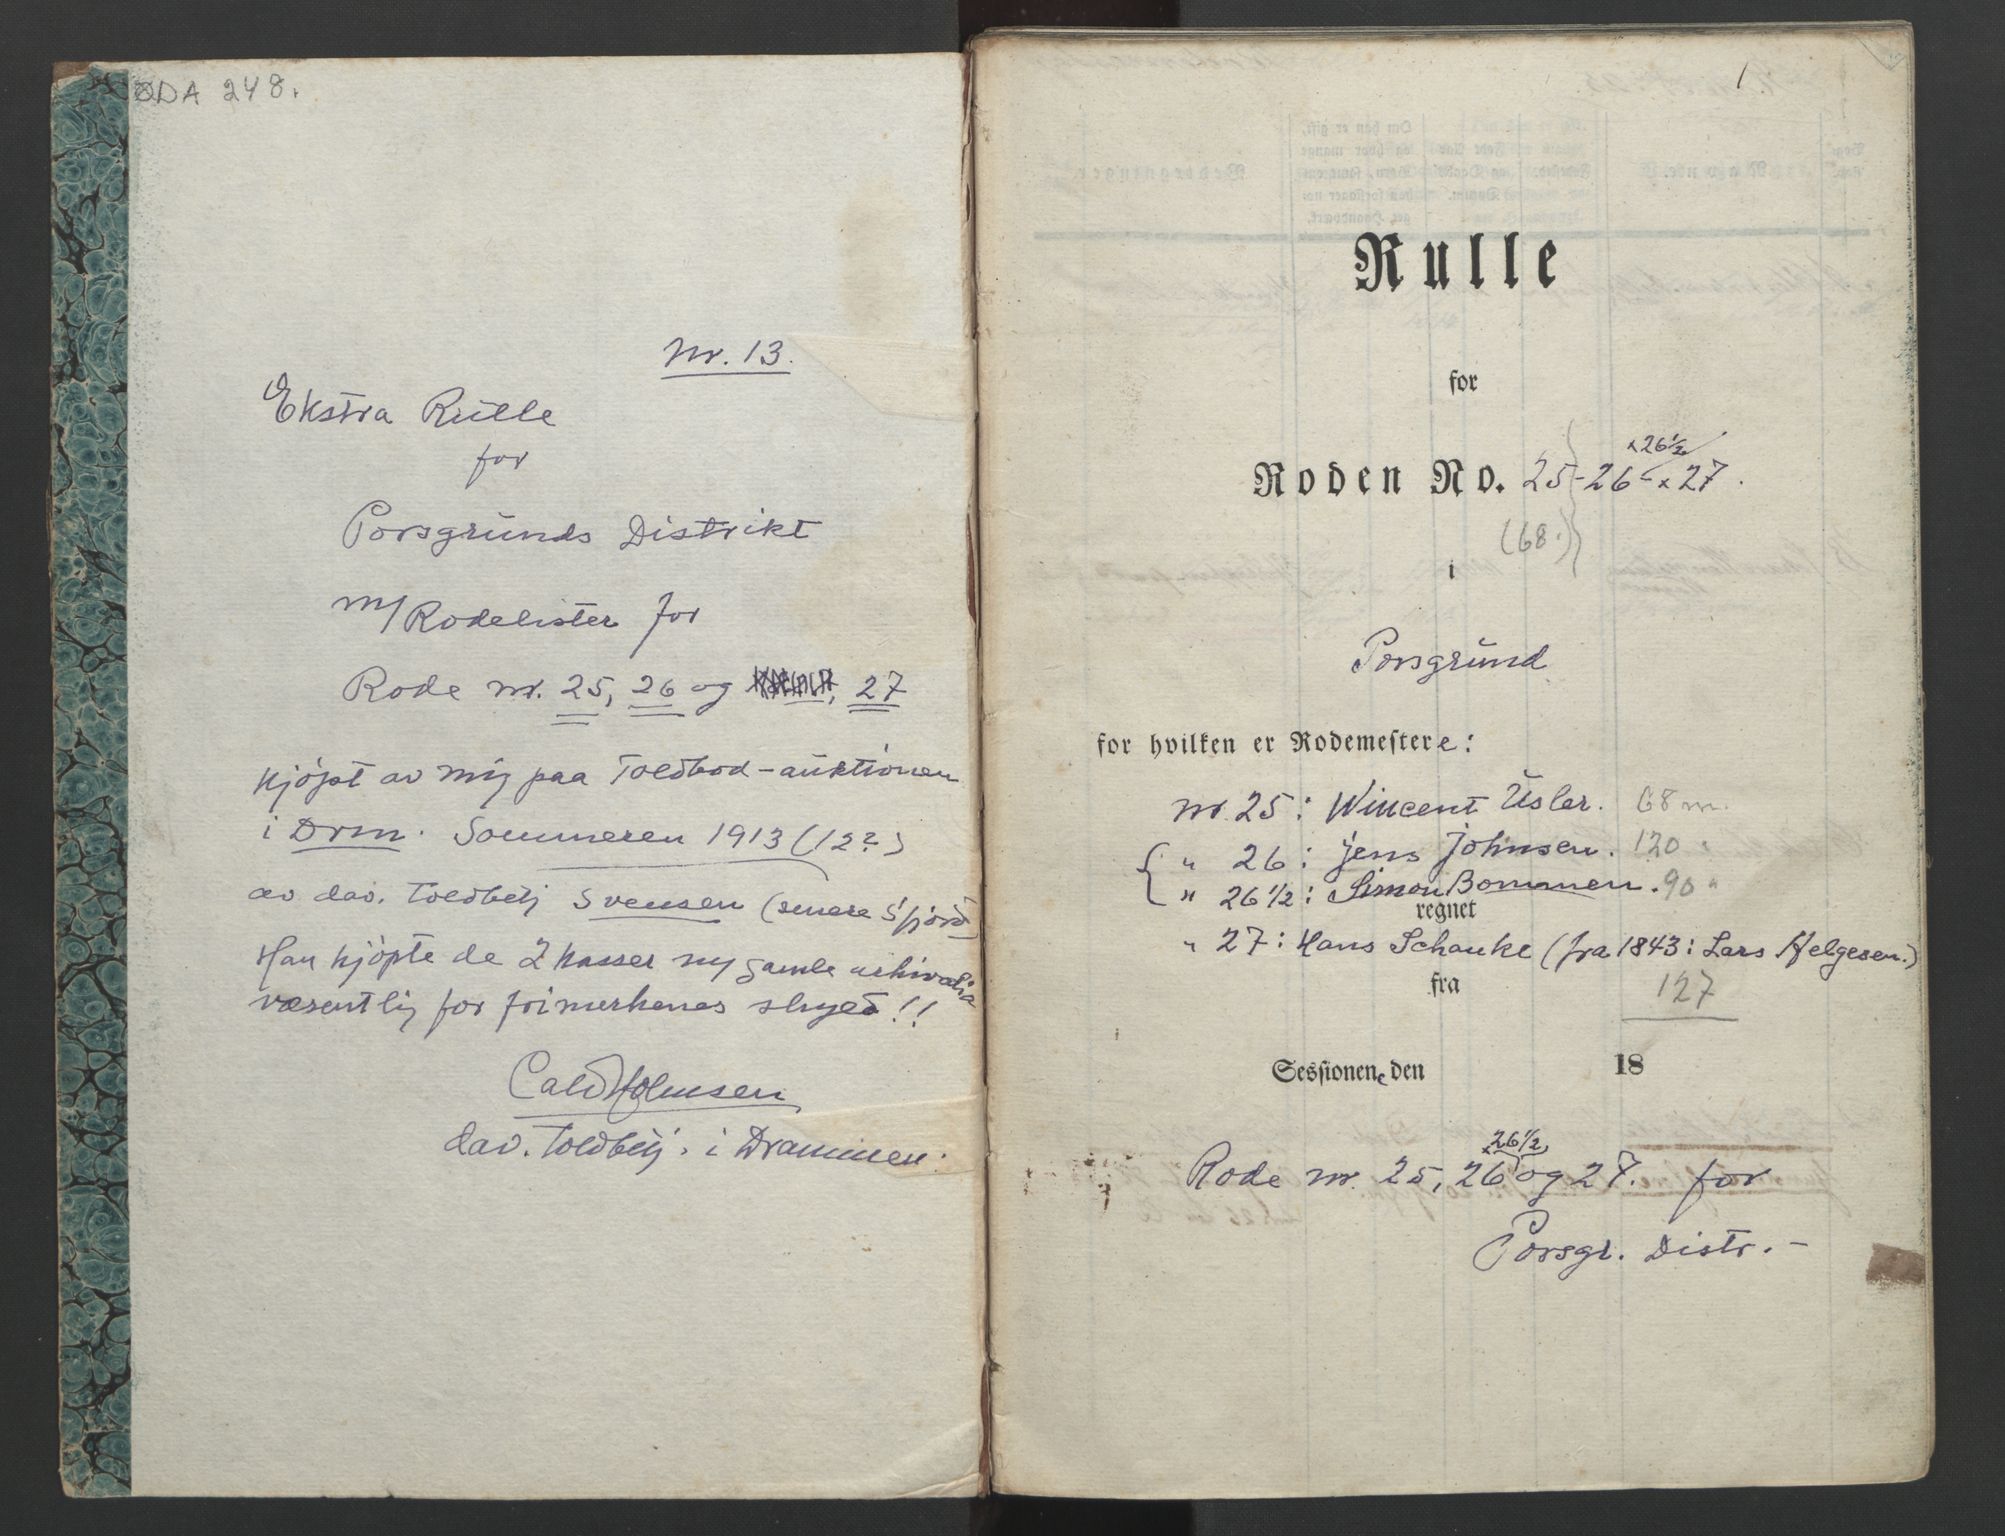 ØDA 248.
Nr. 13.
Ekstra Rulle
for
Porsgrunds Distrikt
m/Rodelister for
Rode nr. 25, 26 og 27
kjöpt av mig paa Toldbod-auktionen
i Drm. Sommeren 1913 (12?)
av dav. Toldbetj Svensen (senere
Han kjöpte de 2 kasser m/ gamle arkivalia
væsentlig for frimerkenes skyld!!
Holmsen
dav. Toldbetj. i Drammen.
1
Rulle
for
x 26½
Roden No. 25-26- x 27.
(68.)
i
Porsgrund
for hvilken er Rodemestere:
nr. 25: Wincent Usler. 68 m.
" 26: Jens Johnsen. 120 "
" 26½: Simon Bommen. 90 "
regnet
" 27: Hans Schanke (fra 1843: Lars Helgesen.)
fra
127
Sessionene den 18
x 26½
Rode nr. 25, 26 og 27. for
Porsgr. Distr. -